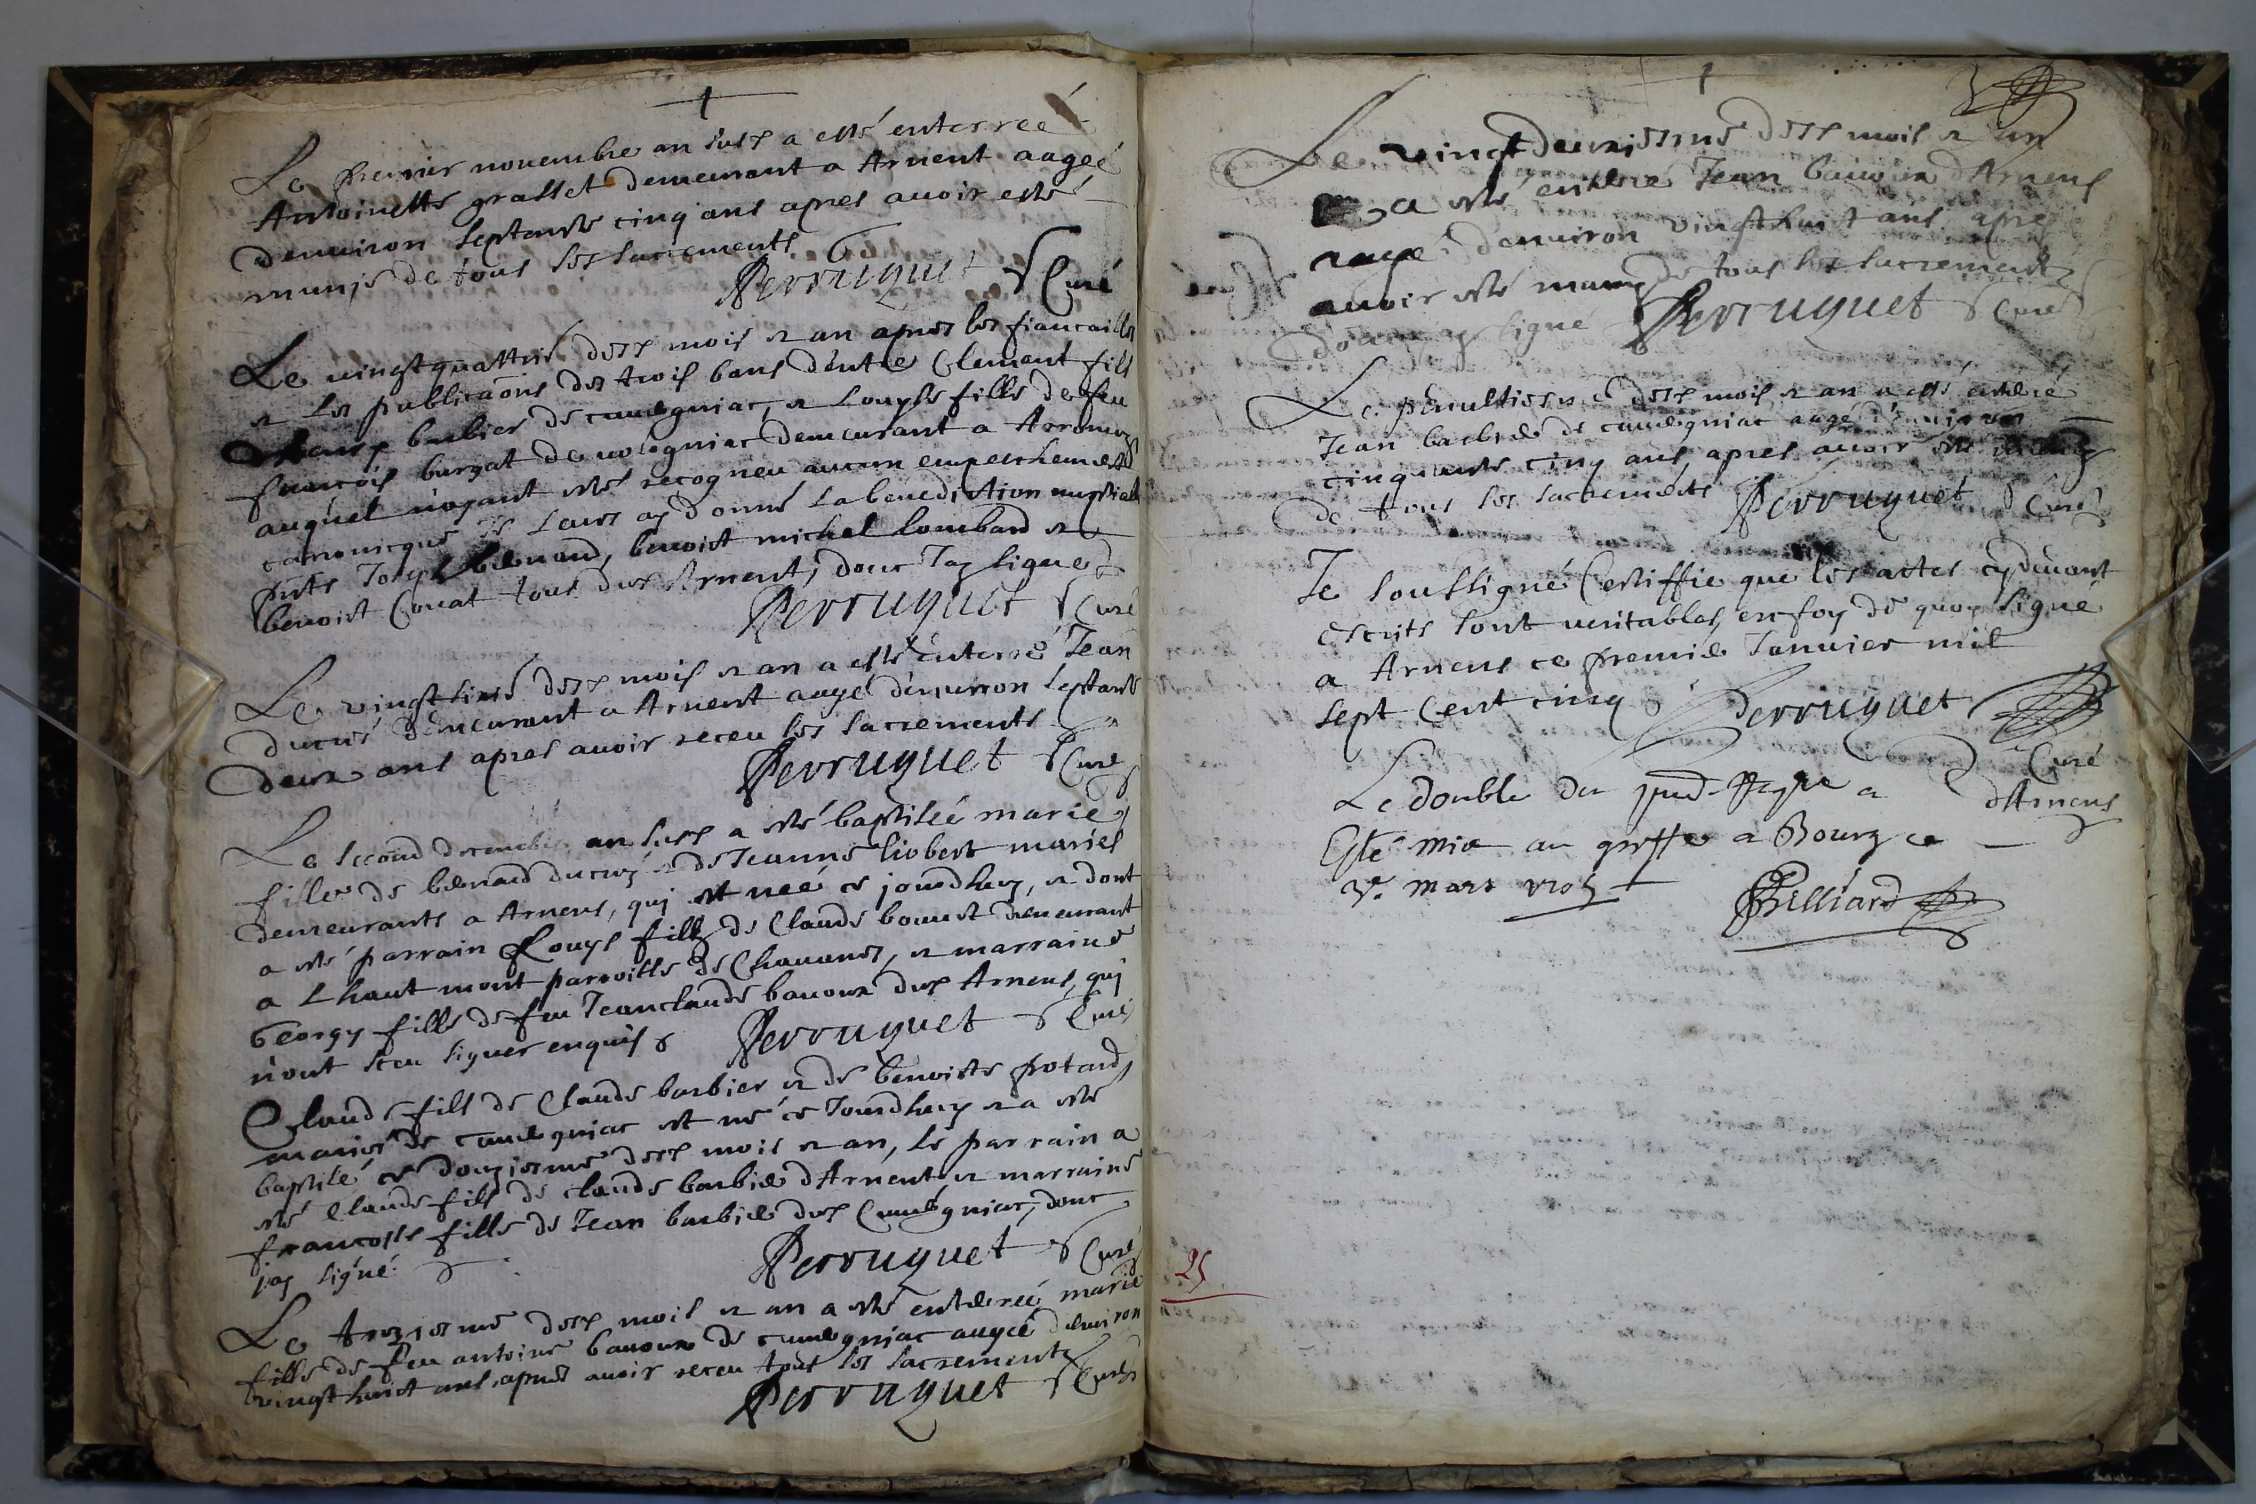 Le premier novembre an susd a esté enterreé
Antoinette grasset demeurant a Arnent aageé
denuiron septante cinq ans apres auoir esté
munje de tous les sacrements
Perruquet Curé
Le vingt quattrie desd mois et an apres les fiancailles
et les publicaons des trois bans d'entre Clement fils
barbier de cauegniac, et Louyse fille de feu
francois burgat de vologniac demeurant a
auquel n'ayant esté recogneu aucun empeschement
canonicque je leurs ay donné la benediction nuptiale
pnts Joseph bernand, benoist michel lombard et
benoist Couat tous dud Arnent, dont Jay signé
Perruquet Curé
Le vingt sixie desd mois et an a esté enterré Jean
ducré demeurant a Arnent aagé denuiron septante
deux ans apres auoir receu les sacrements
Perruquet Curé
Le second decembre an susd a esté baptiseé marie
fille de bernard ducré et de Jeanne liobert mariés
demeurants a Arnens, qui est neé ce jourdhuy, et dont
a esté parrain Louys fils de Claude bouuet demeurant
a Lhaut mont parroisse de Chauanes, et marraine
Georgy fille de feu Jeanclaude bauoux dud Arnens, qui
n'ont sceu signer enquis
Perruquet Curé
Claude fils de Claude barbier et de benoiste protard
mariés de cauegniac est né ce Jourdhuy et a esté
baptisé ce douziesme desd mois et an, le parrain a
esté Claude fils de claude barbier d'Arnent et marraine
francoise fille de Jean barbier dud Cauegniac, dont
jay signé
Perruquet Curé
Le treziesme desd mois et an a esté enterreé marie
fille de feu antoine bauoux de cauegniac aageé denuiron
vingt huict ans apres auoir receu tous les sacrements
Perruquet Curé
Le vingt deuxiesme desd mois et an
a esté enterré Jean bauoux d'Arnens
aagé denuiron vingt huict ans apres
auoir esté muny de tous les sacrements
dont jay signé Perruquet Curé
Le penultiesme desd mois et an a esté enterré
Jean barbier de cauegniac aagé d'enuiron
cinquante cinq ans apres auoir esté muny
de tous les sacrements Perruquet Curé
Je soussigné Certiffie que les actes cydeuant
escrits sont veritables, en foy de quoy signé
a Arnens ce premier Januier mil
sept Cent cinq Perruquet
Curé
d'Arnens
Le double du pnt Regre a
Esté mis au greffe a Bourg ce
3e. mars 1705
Billiard
25